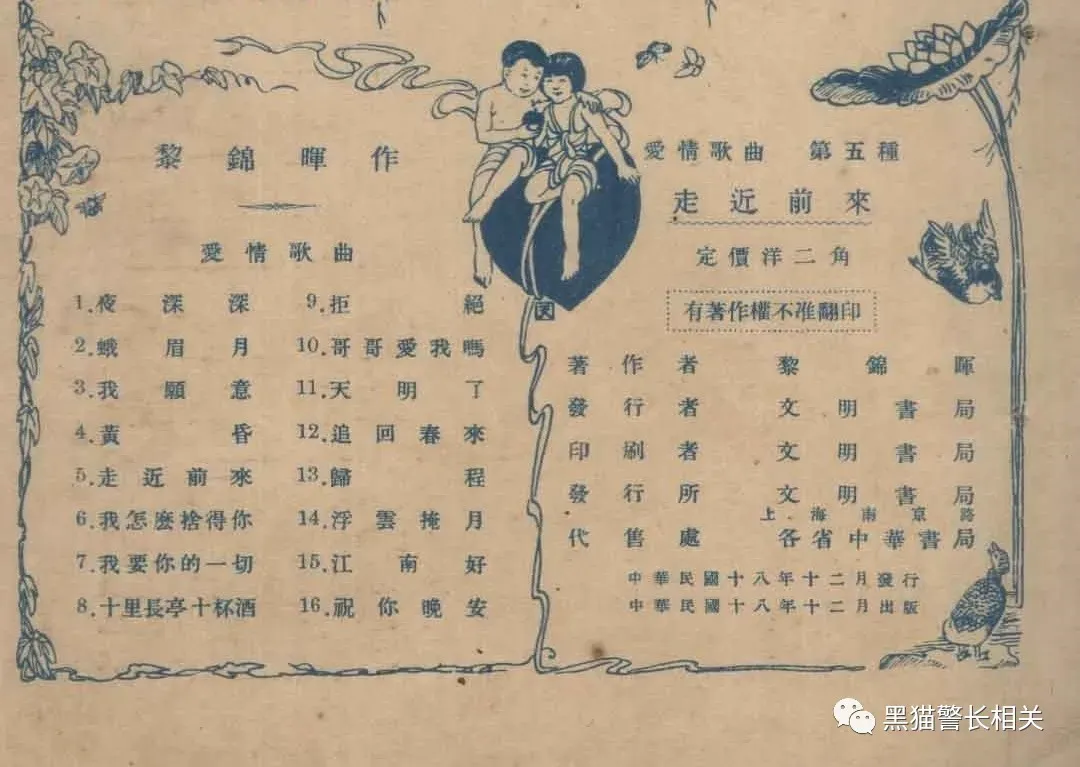 黎錦暉作
愛情歌曲
1.夜深深
2.蛾眉月
3.我願意
4.黃昏
5.走近前來
6.我怎麽捨得你
7.我要你的一切
8.十里長亭十杯酒
9.拒絕
10.哥哥愛我嗎
11.天明了
12.追回春來
13.歸程
14.浮雲掩月
15.江南好
16.祝你晚安
愛情歌曲 第五種
走近前來
定價洋二角
有著作權不准翻印
著作者 黎錦暉
發行者 文明書局
印刷者 文明書局
發行所 文明書局
上海南京路
代售處 各省中華書局
中華民國十八年十二月發行
中華民國十八年十二月出版
黑猫警长相关